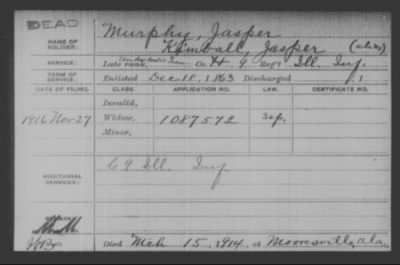 DEAD
NAME OF SOLDIER: Murphy, Jasper
Kimball, Jasper (alias)
SERVICE: Late rank, Co. H. 9 Reg't Ill. Inf.
TERM OF SERVICE: Enlisted Dec 18, 1863 Discharged , 1
DATE OF FILING. CLASS. APPLICATION NO. LAW. CERTIFICATE NO.
Invalid,
1916 Nov-27 Widow, 1087572
Minor,
ADDITIONAL SERVICES: C 9 Ill. Inf.
Died Mch 15, 1914, at Mooresville, Ala.